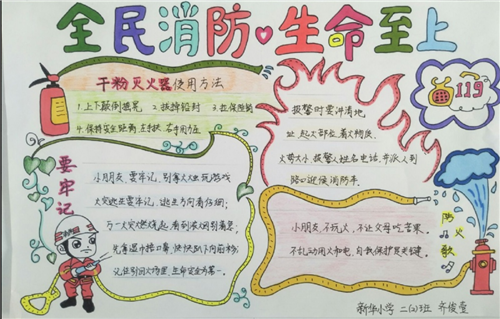 全民消防生命至上
干粉灭火器使用方法
1.上下颠倒摇晃 2.拔掉铅封 3.拉保险销
4.保持安全距离 左手扶 右手用力压
报警时要讲清地
址 起火部位 着火物质
火势大小 报警人姓名电话 并派人到
路口迎候消防车
119
要牢记
小朋友 要牢记 别拿火火玩游戏
火灾 逃生方向看仔细
万一火灾燃烧起 看到浓烟别着急
先 湿巾捂口鼻 快快趴下向前移
记住引 生命安全第一
防火歌
小朋友 不玩火 不让父母吃苦果
不乱动用火和电 自我保护是关键
新华小学 二(2)班 齐俊莹